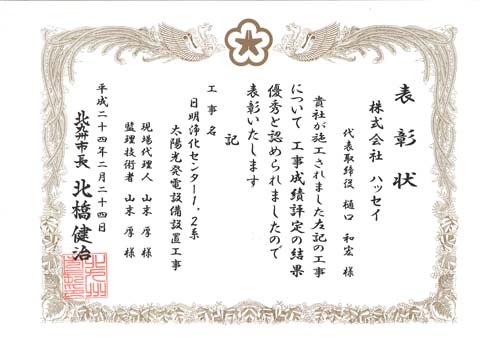 表彰状
株式会社 ハッセイ
代表取締役 樋口 和宏 様
貴社が施工されました左記の工事
について 工事成績評定の結果
優秀と認められましたので
表彰いたします
記
工事名
日明浄化センター1,2系
太陽光発電設備設置工事
現場代理人 山末 厚 様
監理技術者 山末 厚 様
平成二十四年二月二十四日
北九州市長 北橋健治